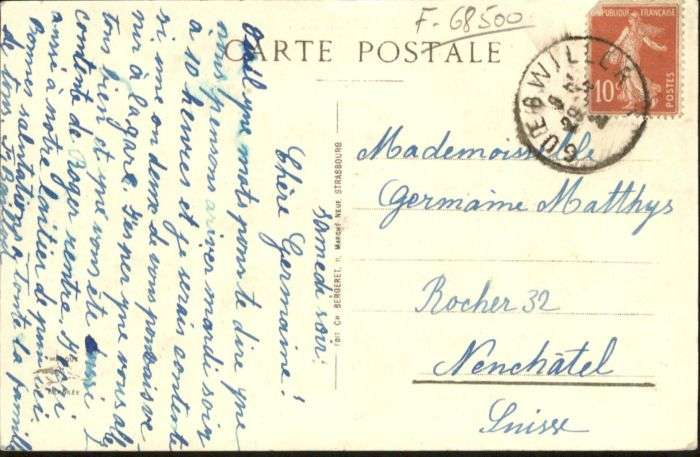 F-68500
CARTE POSTALE
REPUBLIQUE FRANÇAISE
10c
POSTES
GUEBWILLER
Samedi soir.
Chère Germaine!
mots pour te dire que
nous pensons ariver mardi soir
à 10 heures et je serais contente
si une ou deux de vous pouvais ve
nir à la gare. J'espère que vous alle
tous bien et que vous ete aussi
contente de rentre.
aussi à notre
Bonnes salutations a Toute la famille
de tous
Edit. CH. BERGERET, MARCHÉ NEUF, STRASBOURG
Mademoiselle
Germaine Matthys
Rocher 32
Neuchâtel
Suisse